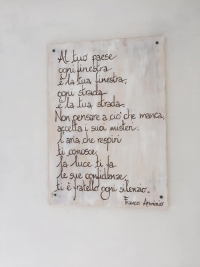 Al tuo paese
ogni finestra
è la tua finestra,
ogni strada
è la tua strada.
Non pensare a ciò che manca,
accetta i suoi misteri.
l'aria che respiri
ti conosce,
la luce ti fa
le sue confidenze,
ti è fratello ogni silenzio.
Franco Arminio